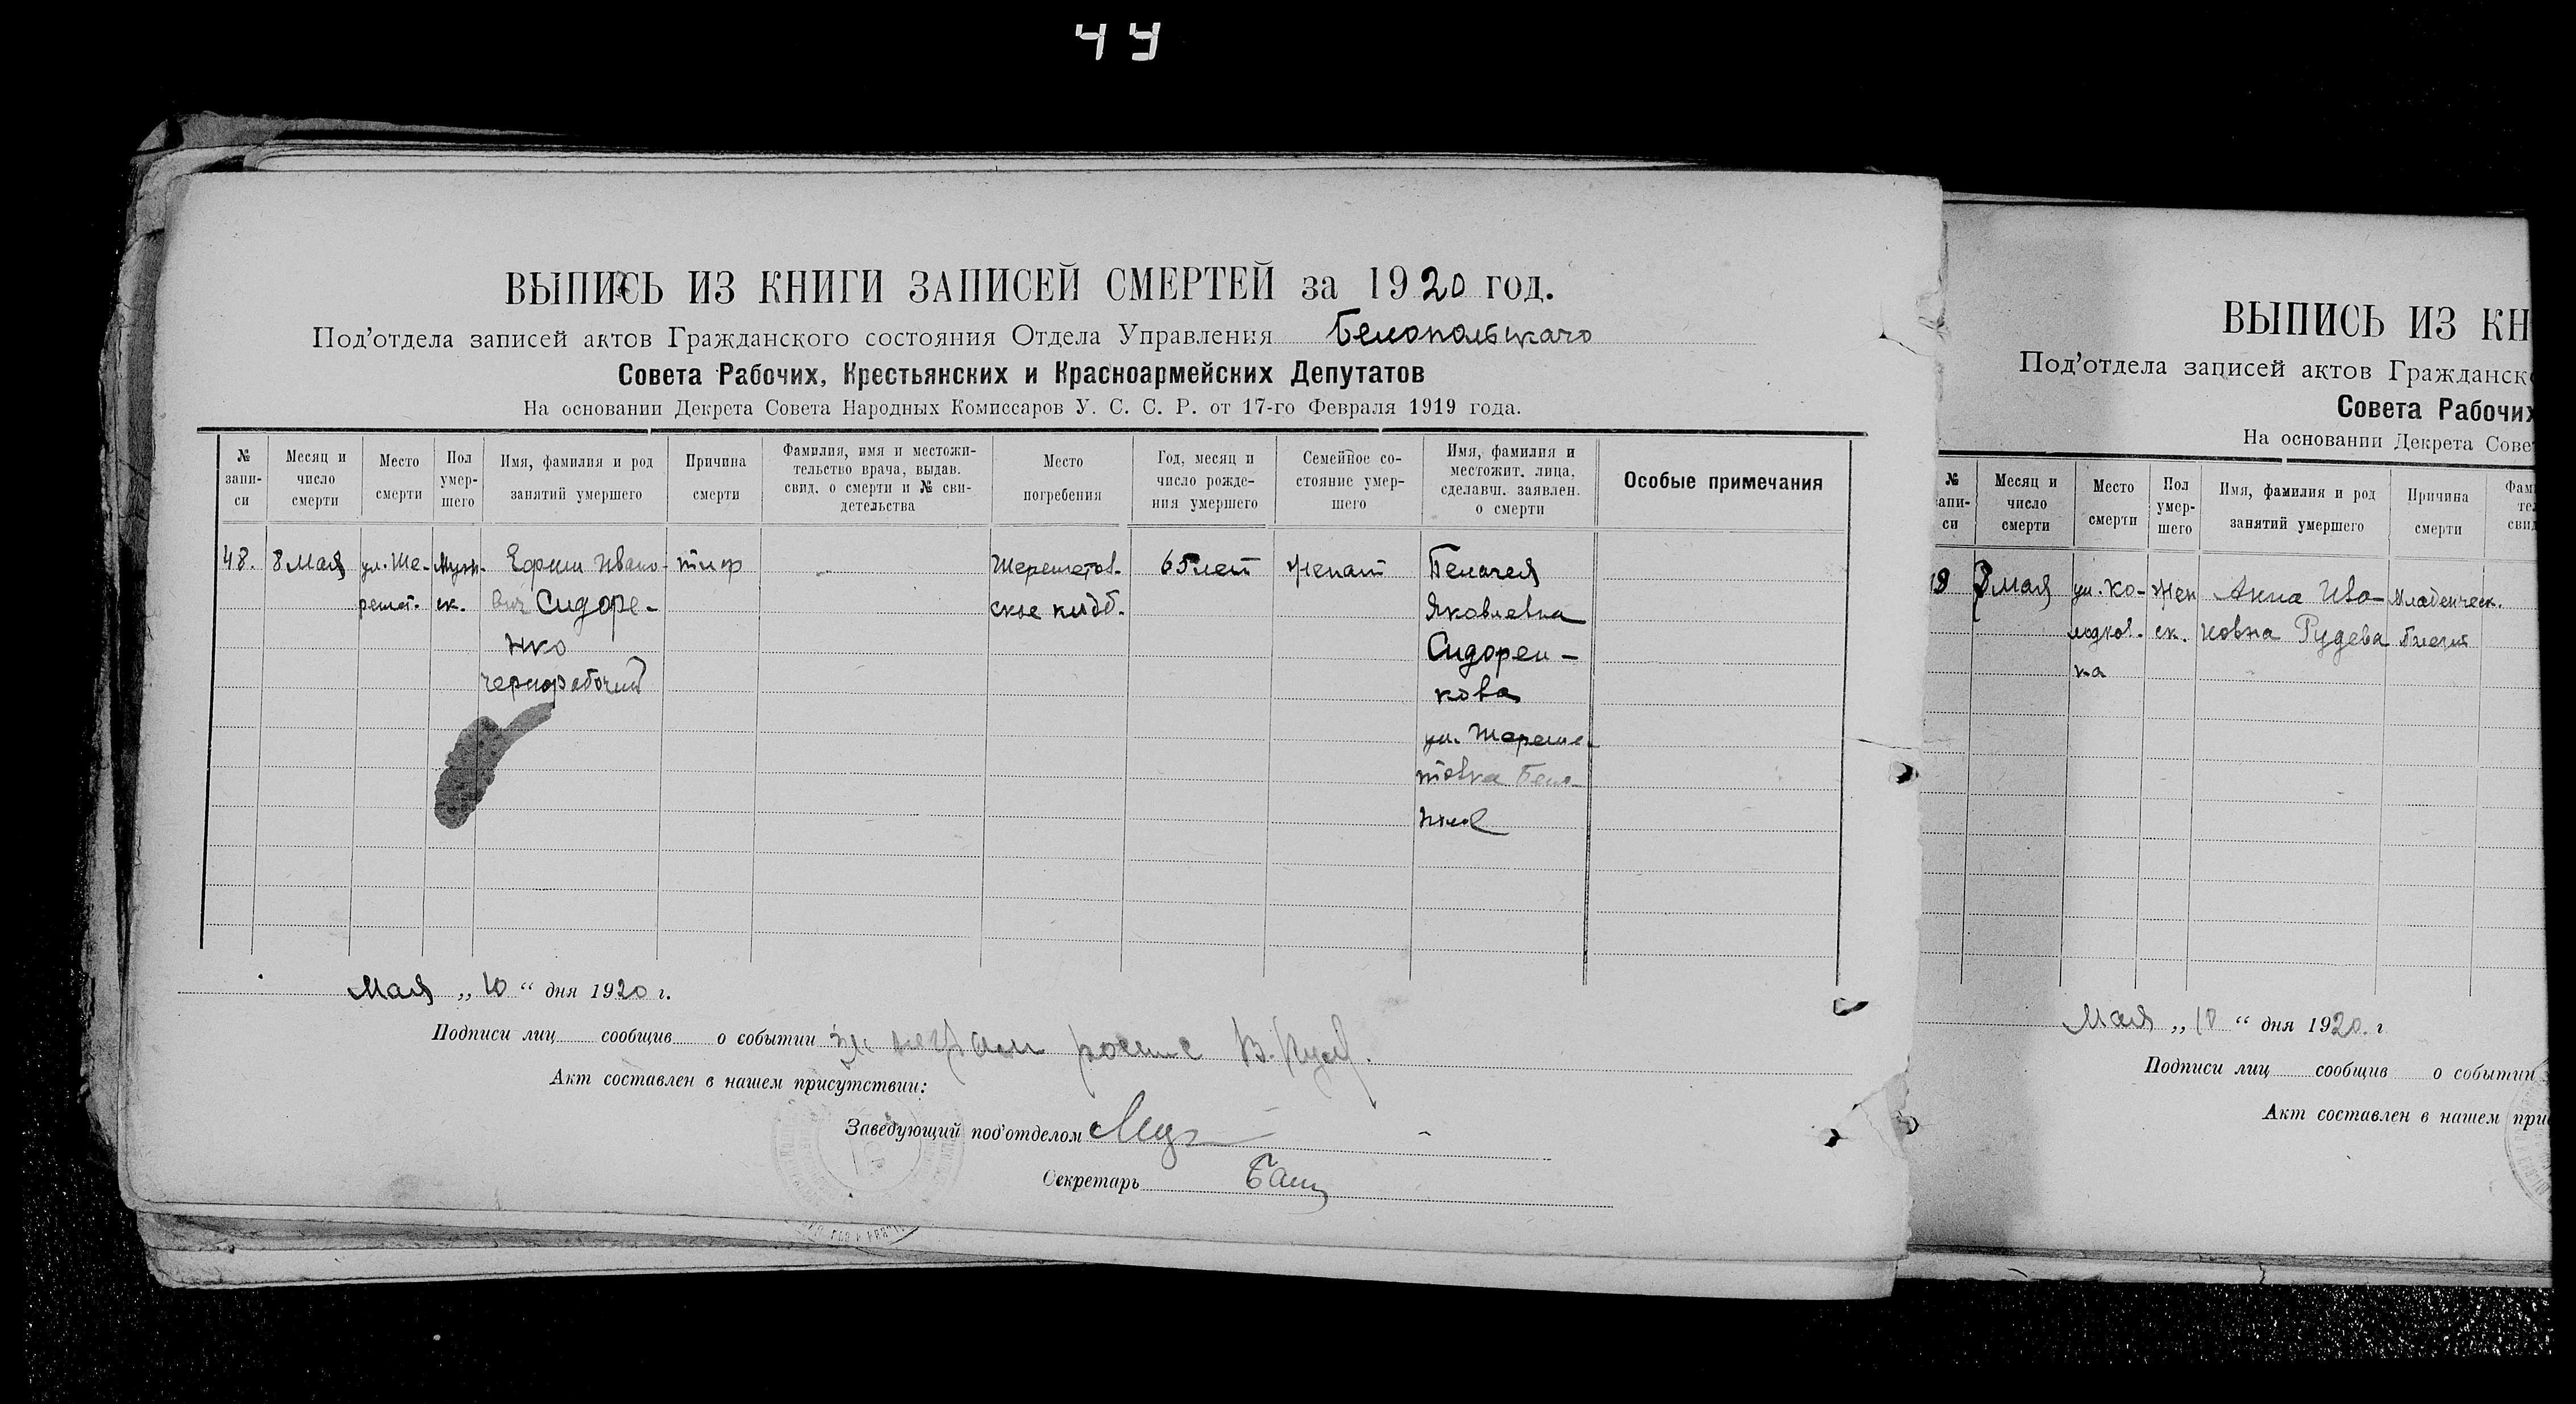 44
ВЫПИСЬ ИЗ КНИГИ ЗАПИСЕЙ СМЕРТЕЙ за 1920 год.
Под'отдела записей актов Гражданского состояния Отдела Управления Белопольскаго
Совета Рабочих, Крестьянских и Красноармейских Депутатов
На основании Декрета Совета Народных Комиссаров У. С. С. Р. от 17-го Февраля 1919 года.
№ запи-си
Месяц и число смерти
Место смерти
Пол умер-шего
Имя, фамилия и род занятий умершего
Причина смерти
Фамилия, имя и местожи-тельство врача, выдав. свид. о смерти и № сви-детельства
Место погребения
Год, месяц и число рожде-ния умершего
Семейное со-стояние умер-шего
Имя, фамилия и местожит. лица, сделавш. заявлен. о смерти
Особые примечания
48.
8 Мая
ул. Ше-
решет.
Муж-
ск.
Ефим Ивано-
вич Сидоре-
нко
чернорабочий
тиф
Шереметов-
ское кладб.
65 лет
женат
Пелагея
Яковлевна
Сидорен-
кова
ул. Шереме-
товка Бело-
Мая „10“ дня 1920 г.
Подписи лиц сообщив о событии
Акт составлен в нашем присутствии:
Заведующий под'отделом
Секретарь
ВЫПИСЬ ИЗ КН
Под'отдела записей актов Гражданск
Совета Рабочих
На основании Декрета Сове
№ запи-си
Месяц и число смерти
Место смерти
Пол умер-шего
Имя, фамилия и род занятий умершего
Причина смерти
8 мая
ул. Ко-
Жен
ск.
Анна Ива-
новна Рудева
Младенческ.
Мая „10“ дня 1920. г
Подписи лиц сообщив о событии
Акт составлен в нашем при